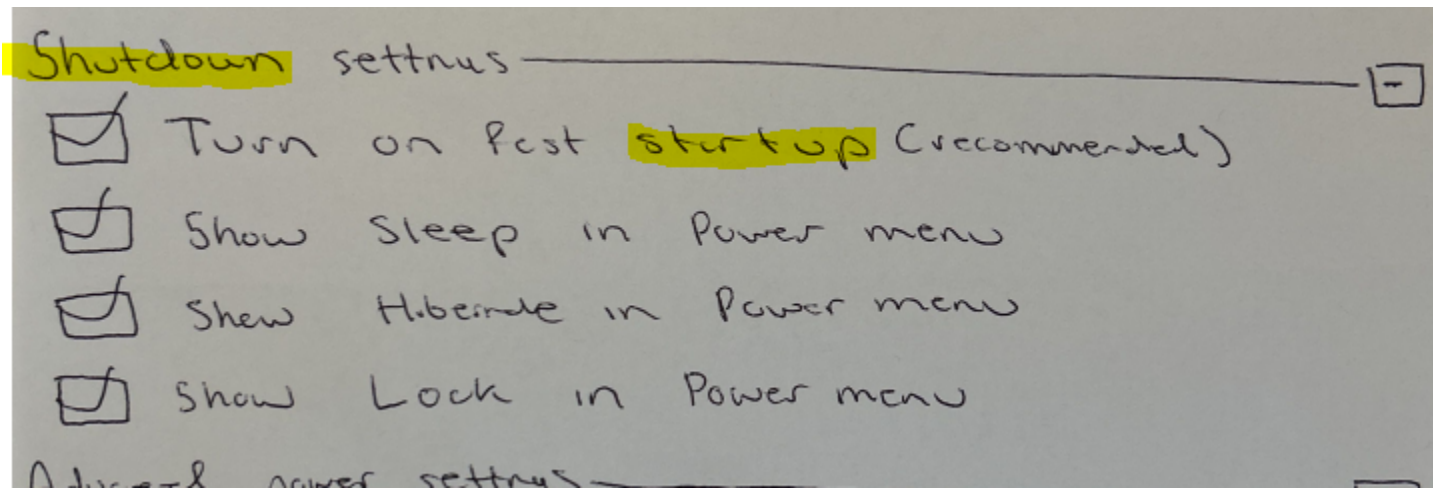 Shutdown settings
Turn on fast startup (recommended)
Show Sleep in Power menu
Show Hibernate in Power menu
Show Lock in Power menu
power settings